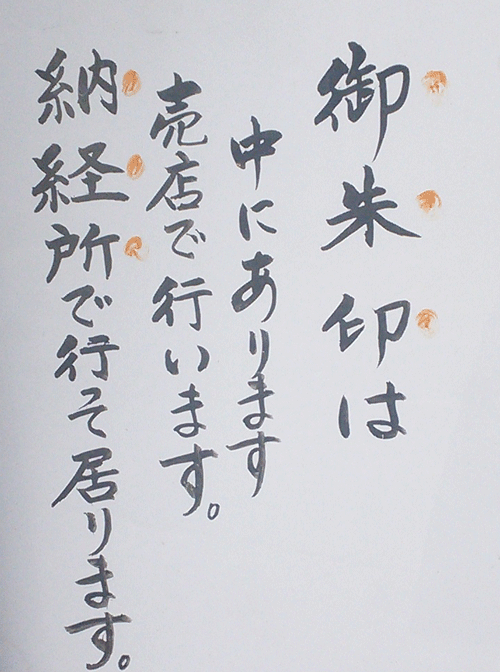 御朱印は
中にあります
売店で行います。
納経所で行そ居ります。